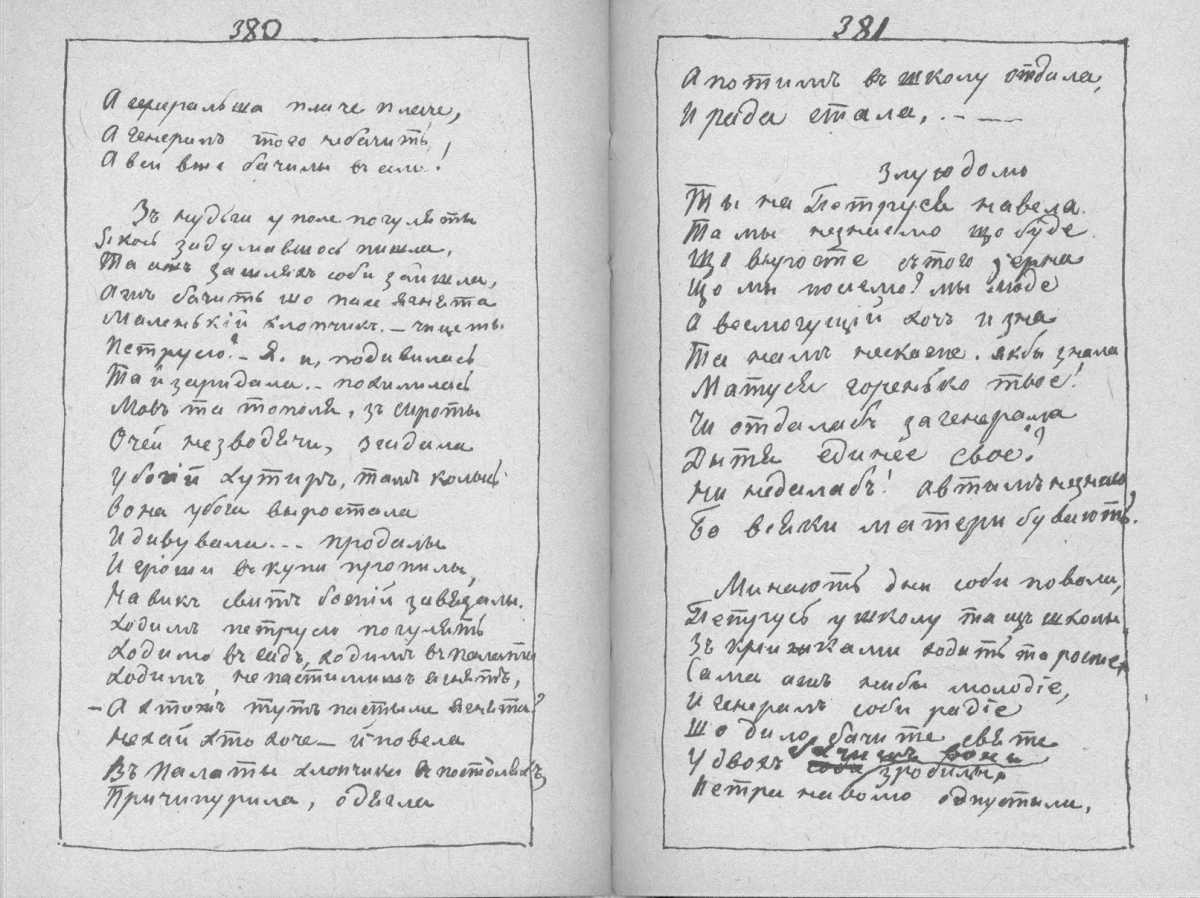 380
А генеральша плаче плаче,
А генералъ того небачить,
А вси вже бачилы въ селі!
Зъ нудьги у поле погуляты
Якось задумавшось пишла,
Та ажъ за шляхъ соби зайшла,
Ажъ бачить що пасе ягнята
Маленькій хлопчикъ. — чицеты
Петрусю? — Я. и, подивилась
Та й заридала. — похилилась
Мовъ та тополя, зъ сироты
Очей незводячи, згадала
Убогій хутиръ, тамъ колысь
Вона убога выростала
И дивувала... продалы
И гроши въ купи пропилы,
Навикъ свитъ божій завязалы.
Ходимъ петрусю погулять
Ходимо въ садъ, ходимъ въ палаты
Ходимъ, непастимишъ ягнятъ,
— А хтожъ тутъ пастыме ягнята?
Нехай хто хоче — й повела
Въ палаты хлопчика въ постоляхъ,
Причипурила, одягла
381
А потимъ въ школу отдала,
И рада стала, . - —
Злую долю
Ты на Петруся навела.
Та мы незнаемо що буде
Що выросте съ того зерна
Що мы посіемо? мы люде
А всемогущій хочъ и зна
Та намъ нескаже. якбы знала
Матуся горенько твое!
Чи отдалабъ за генерала
Дытя единее свое?
Ни недалабъ! а втимъ незнаю
Бо всяки матери бувають.
Минають дни соби поволи,
Петрусь у школу та изъ школы
Зъ книжками ходить та росте,
Сама ажъ ниби молодіе,
И генералъ соби радіе
Що дило бачите святе
У двохъ соби зробилы.
Петра наволю одпустили,